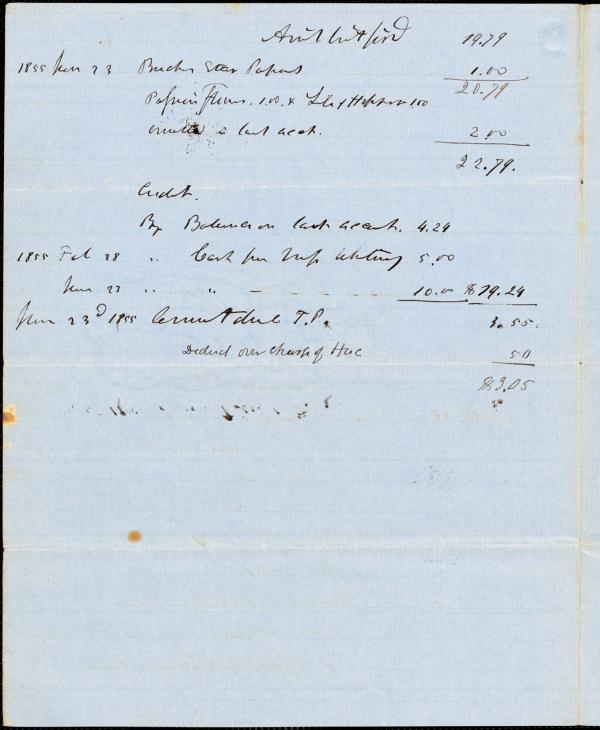 Amt brt ford 19.79
1855 Jun 23 Buchu Star Papers 1.00
20.79
1.00 & 1.00
omitted in last acct. 2.00
22.79.
Credit.
By Balance on last account. 4.24
1855 Feb 28 " Cash per 5.00
Jun 23 " " 10.00 $19.24
Jun 23d 1855 Amount due T.P. 3.55.
Deduct over charge of 50
$3.05